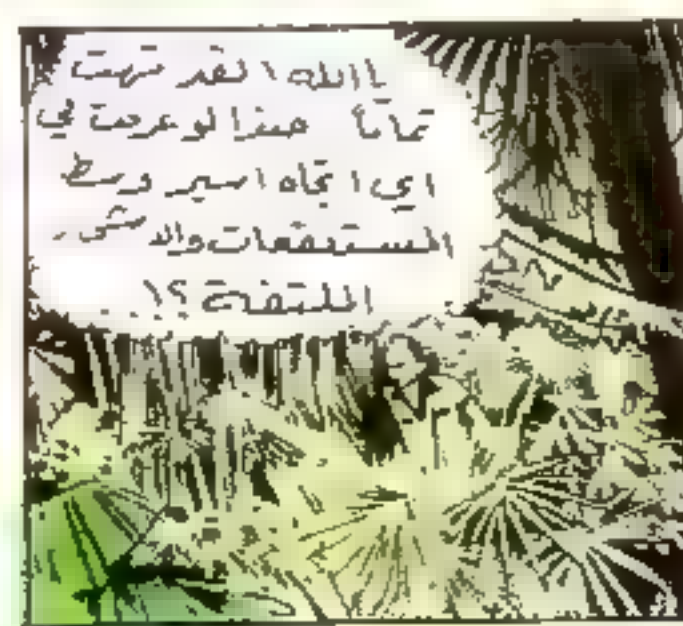 يا الله ! لقد تهت
تماماً حبذا لو عرفت في
اي اتجاه اسير وسط
المستنقعات والا
الملتفة ؟! . .